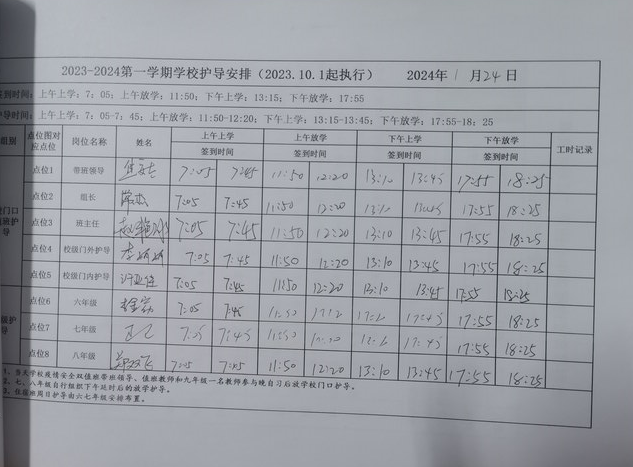 2023-2024第一学期学校护导安排（2023.10.1起执行） 2024年 1 月24日
签到时间：上午上学：7：05；上午放学：11:50；下午上学：13:15；下午放学：17:55
护导时间：上午上学：7：05-7：45；上午放学：11:50-12:20；下午上学：13:15-13:45；下午放学：17:55-18：25
组别 点位图对应点位 岗位名称 姓名 上午上学 上午放学 下午上学 下午放学 工时记录
签到时间 签到时间 签到时间 签到时间
点位1 带班领导 7:05 7:45 11:50 12:20 13:10 13:45 17:55 18:25
点位2 组长 7:05 7:45 11:50 12:20 13:10 13:45 17:55 18:25
点位3 班主任 7:05 7:45 11:50 12:20 13:10 13:45 17:55 18:25
点位4 校级门外护导 7:05 7:45 11:50 12:20 13:10 13:45 17:55 18:25
点位5 校级门内护导 7:05 7:45 11:50 12:20 13:10 13:45 17:55 18:25
点位6 六年级 7:05 7:45 17:55 18:25
点位7 七年级 7:45 17:55 18:25
点位8 八年级 7:05 7:05 11:50 12:20 13:10 13:45 17:55 18:25
1、当天学校疫情安全双值班带班领导、值班教师和六年级一名教师参与晚自习后放学校门口护导。
2、七、八年级自行组织下午延时后的放学护导。
3、住宿班周日护导由六七年级安排布置。